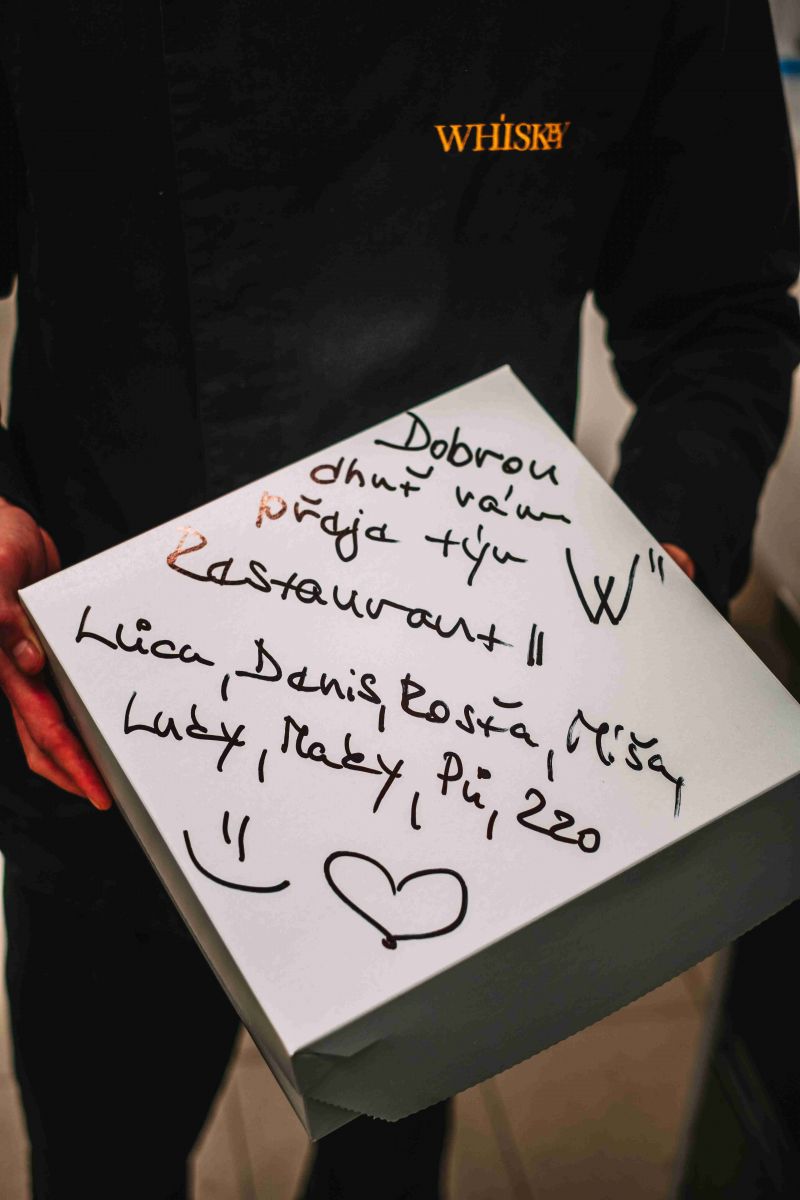 WHISKEY
Dobrou
chuť vám
přeje tým W"
Restaurant "
Luca, Denis, Rosťa, Míša,
Lucky, Macky, Pů, 220